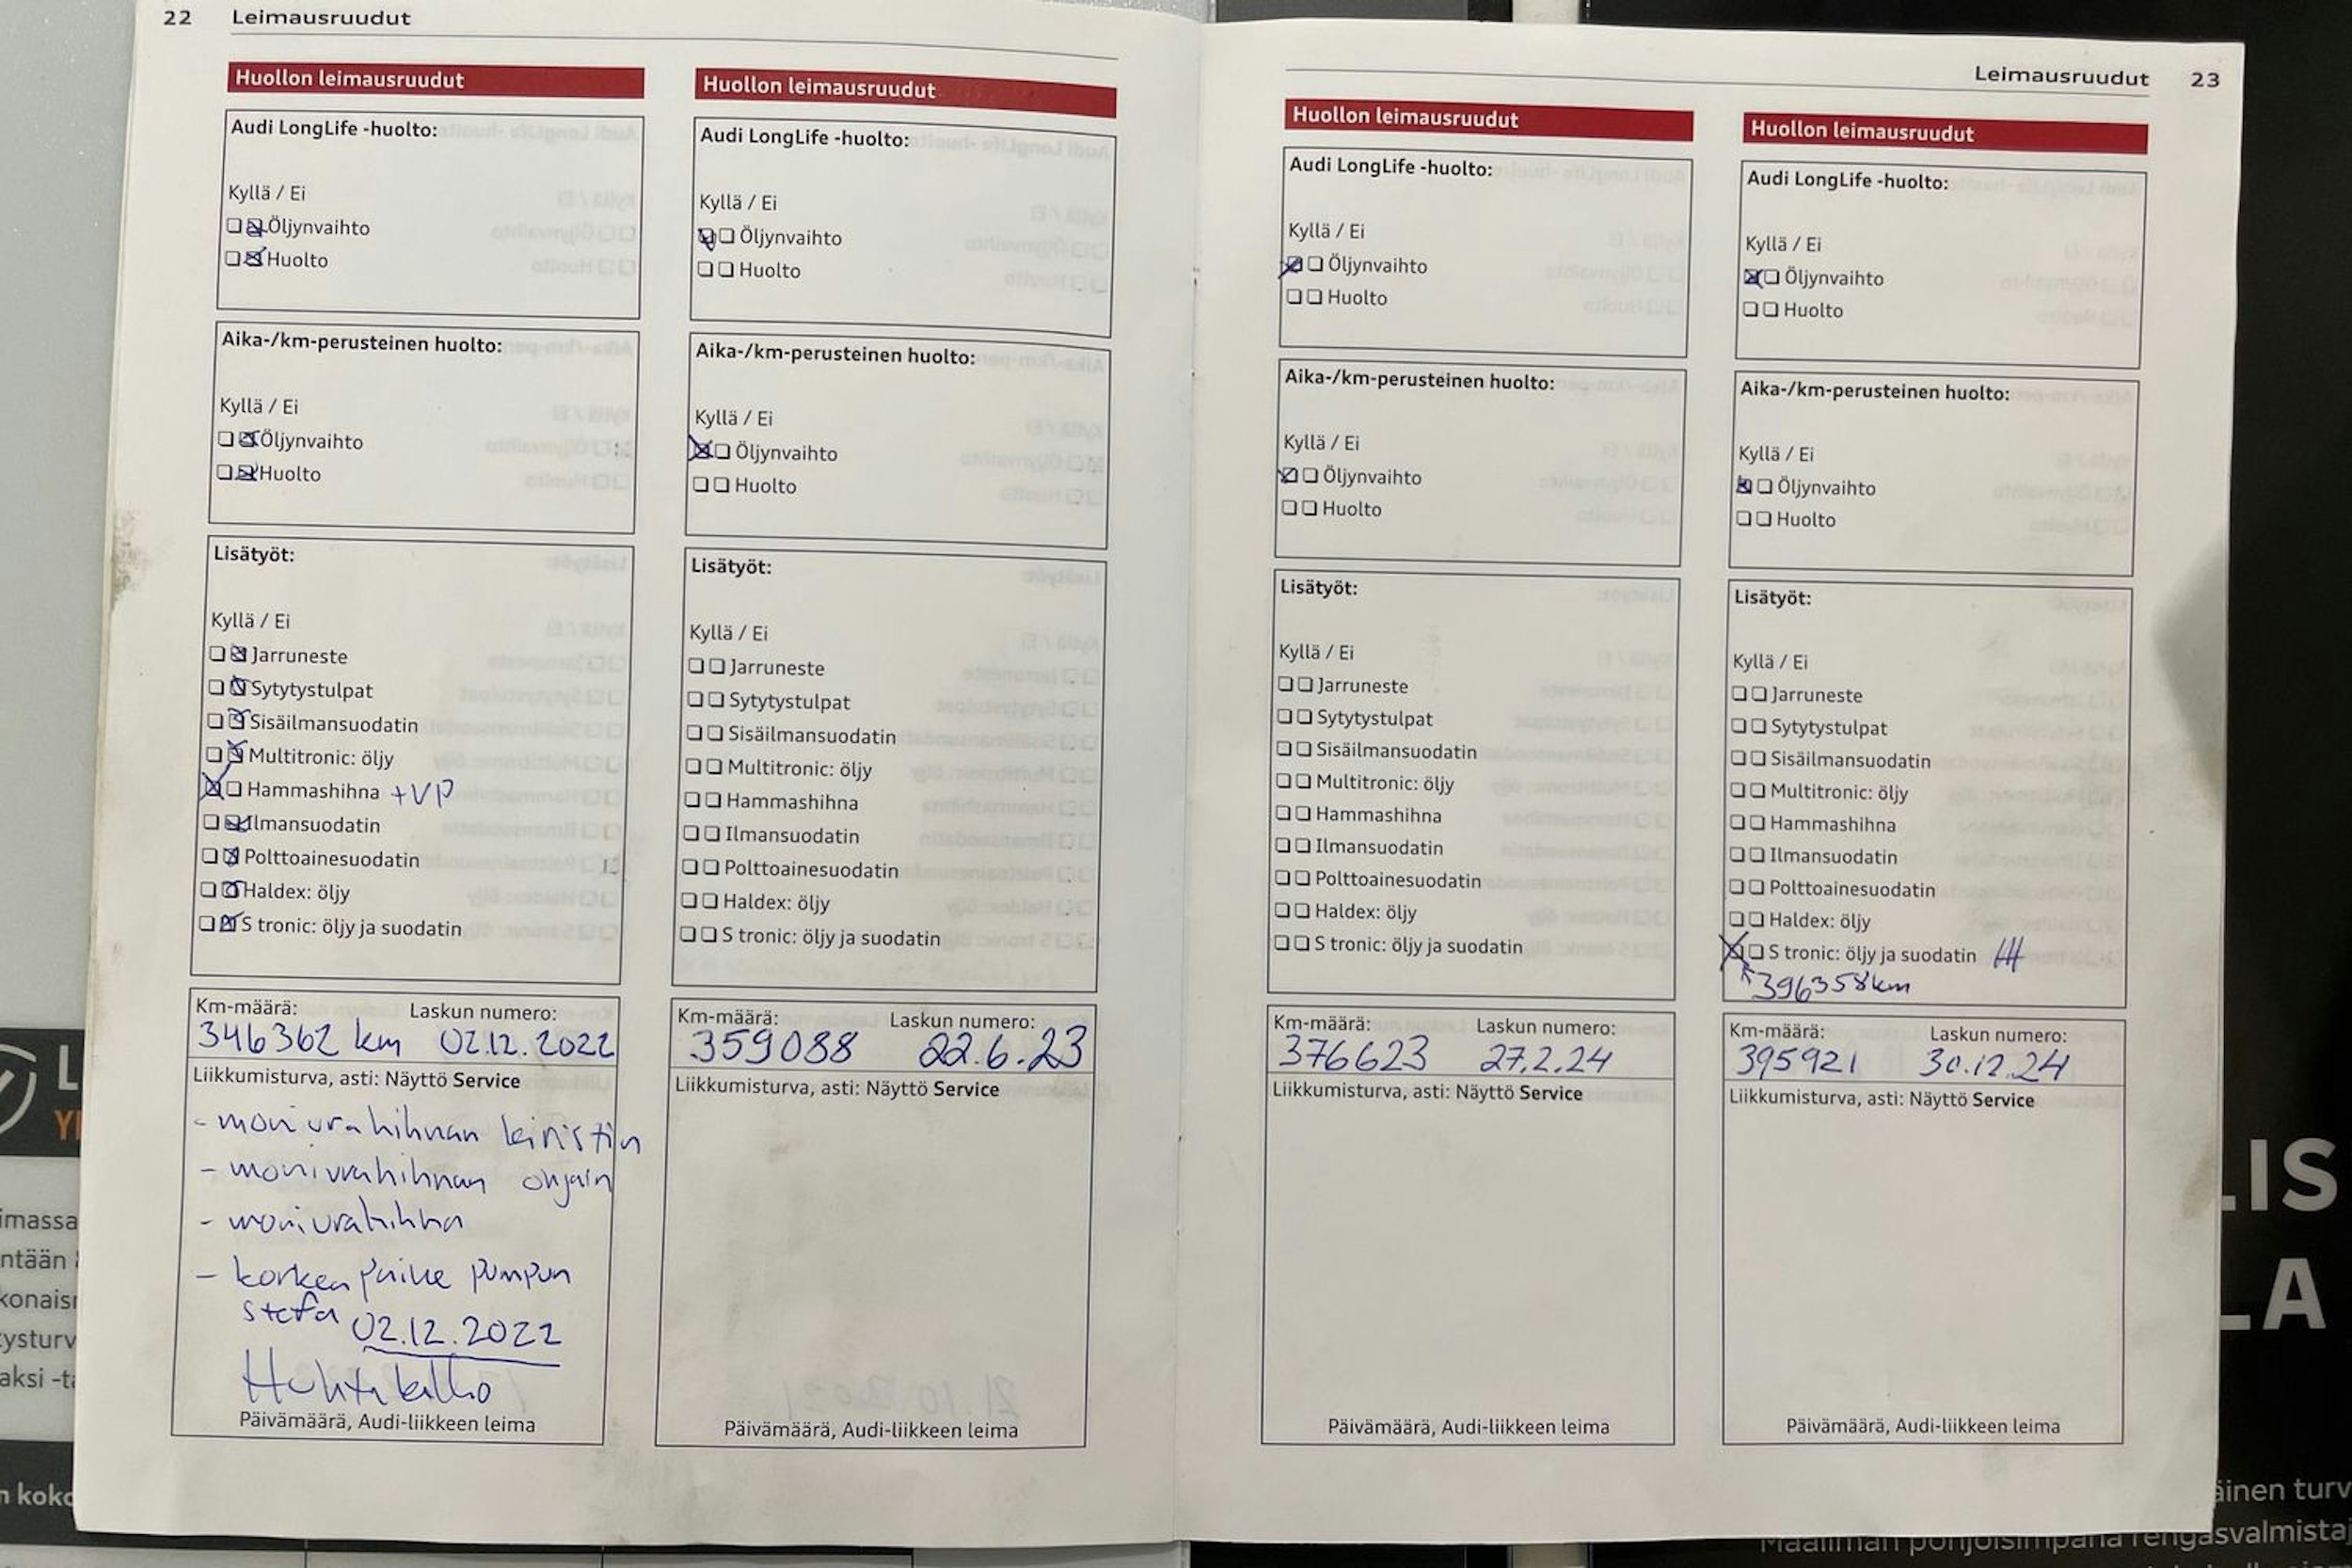 22 Leimausruudut
Huollon leimausruudut
Audi LongLife -huolto:
Kyllä / Ei
Öljynvaihto
Huolto
Aika-/km-perusteinen huolto:
Kyllä / Ei
Öljynvaihto
Huolto
Lisätyöt:
Kyllä / Ei
Jarruneste
Sytytystulpat
Sisäilmansuodatin
Multitronic: öljy
Hammashihna +VP
Ilmansuodatin
Polttoainesuodatin
Haldex: öljy
S tronic: öljy ja suodatin
Km-määrä: Laskun numero:
346362 km 02.12.2022
Liikkumisturva, asti: Näyttö Service
- moniurahihnan kiristin
- moniurahihnan ohjain
- moniurahihna
- korkea paine pumpun
stefa 02.12.2022
Päivämäärä, Audi-liikkeen leima
Huollon leimausruudut
Audi LongLife -huolto:
Kyllä / Ei
Öljynvaihto
Huolto
Aika-/km-perusteinen huolto:
Kyllä / Ei
Öljynvaihto
Huolto
Lisätyöt:
Kyllä / Ei
Jarruneste
Sytytystulpat
Sisäilmansuodatin
Multitronic: öljy
Hammashihna
Ilmansuodatin
Polttoainesuodatin
Haldex: öljy
S tronic: öljy ja suodatin
Km-määrä: Laskun numero:
359088 22.6.23
Liikkumisturva, asti: Näyttö Service
Päivämäärä, Audi-liikkeen leima
Leimausruudut 23
Huollon leimausruudut
Audi LongLife -huolto:
Kyllä / Ei
Öljynvaihto
Huolto
Aika-/km-perusteinen huolto:
Kyllä / Ei
Öljynvaihto
Huolto
Lisätyöt:
Kyllä / Ei
Jarruneste
Sytytystulpat
Sisäilmansuodatin
Multitronic: öljy
Hammashihna
Ilmansuodatin
Polttoainesuodatin
Haldex: öljy
S tronic: öljy ja suodatin
Km-määrä: Laskun numero:
376623 27.2.24
Liikkumisturva, asti: Näyttö Service
Päivämäärä, Audi-liikkeen leima
Huollon leimausruudut
Audi LongLife -huolto:
Kyllä / Ei
Öljynvaihto
Huolto
Aika-/km-perusteinen huolto:
Kyllä / Ei
Öljynvaihto
Huolto
Lisätyöt:
Kyllä / Ei
Jarruneste
Sytytystulpat
Sisäilmansuodatin
Multitronic: öljy
Hammashihna
Ilmansuodatin
Polttoainesuodatin
Haldex: öljy
S tronic: öljy ja suodatin
396358km
Km-määrä: Laskun numero:
395921 30.12.24
Liikkumisturva, asti: Näyttö Service
Päivämäärä, Audi-liikkeen leima